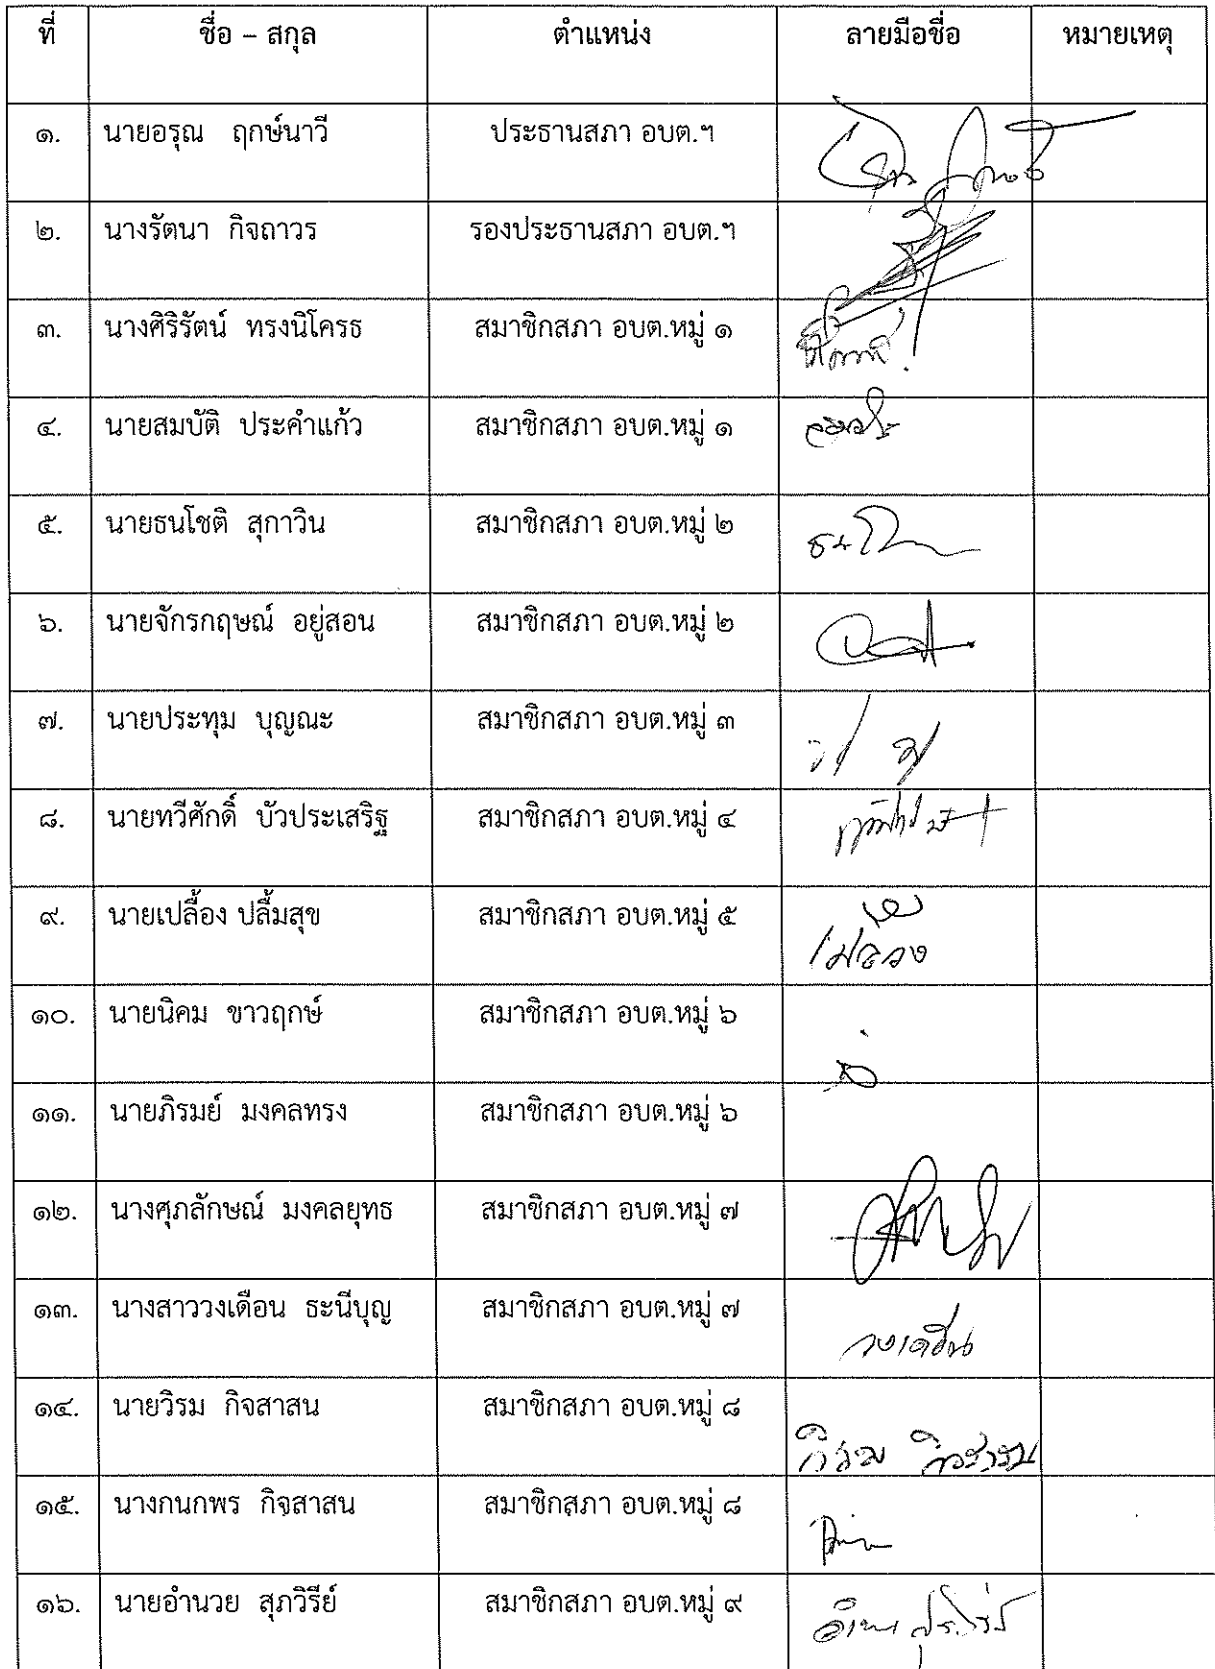 ที่ ชื่อ – สกุล ตำแหน่ง ลายมือชื่อ หมายเหตุ
๑. นายอรุณ ฤกษ์นาวี ประธานสภา อบต.ฯ
๒. นางรัตนา กิจถาวร รองประธานสภา อบต.ฯ
๓. นางศิริรัตน์ ทรงนิโครธ สมาชิกสภา อบต.หมู่ ๑
๔. นายสมบัติ ประคำแก้ว สมาชิกสภา อบต.หมู่ ๑
๕. นายธนโชติ สุกาวิน สมาชิกสภา อบต.หมู่ ๒
๖. นายจักรกฤษณ์ อยู่สอน สมาชิกสภา อบต.หมู่ ๒
๗. นายประทุม บุญณะ สมาชิกสภา อบต.หมู่ ๓
๘. นายทวีศักดิ์ บัวประเสริฐ สมาชิกสภา อบต.หมู่ ๔
๙. นายเปลื้อง ปลื้มสุข สมาชิกสภา อบต.หมู่ ๕
๑๐. นายนิคม ขาวฤกษ์ สมาชิกสภา อบต.หมู่ ๖
๑๑. นายภิรมย์ มงคลทรง สมาชิกสภา อบต.หมู่ ๖
๑๒. นางศุภลักษณ์ มงคลยุทธ สมาชิกสภา อบต.หมู่ ๗
๑๓. นางสาววงเดือน ธะนีบุญ สมาชิกสภา อบต.หมู่ ๗ วงเดือน
๑๔. นายวิรม กิจสาสน สมาชิกสภา อบต.หมู่ ๘ วิรม กิจสาสน
๑๕. นางกนกพร กิจสาสน สมาชิกสภา อบต.หมู่ ๘
๑๖. นายอำนวย สุภวิรีย์ สมาชิกสภา อบต.หมู่ ๙